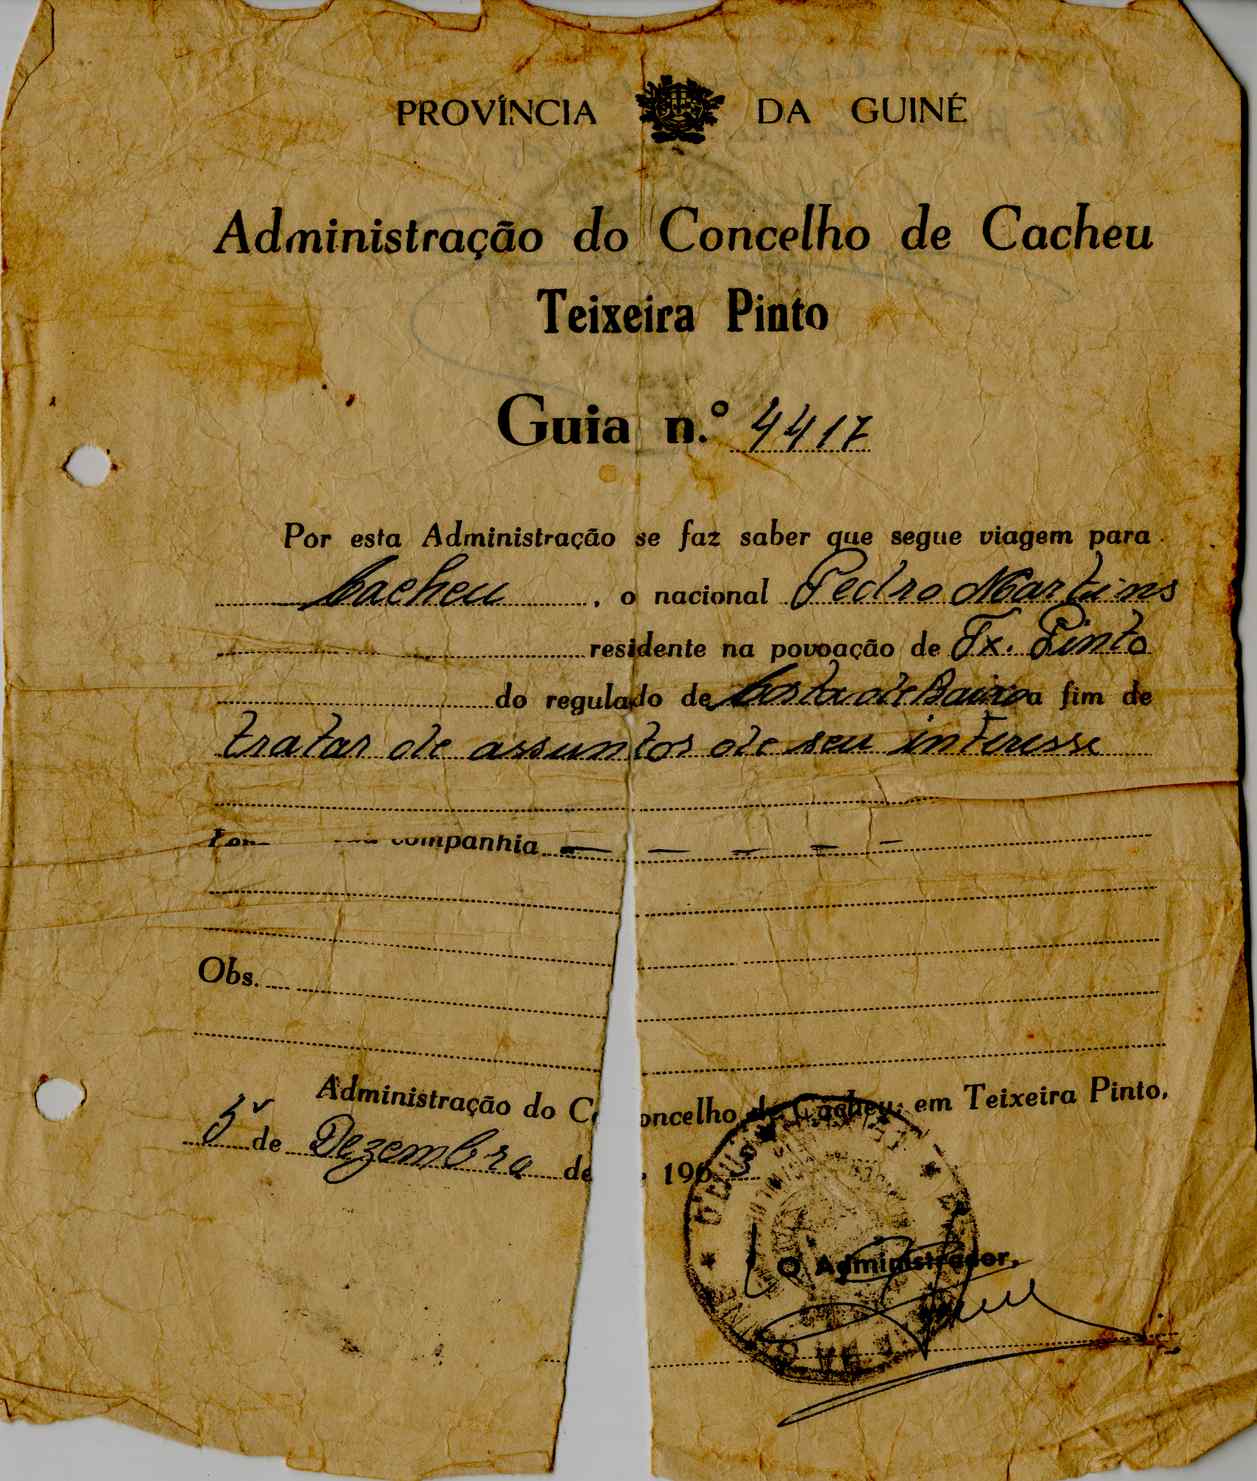 PROVÍNCIA DA GUINÉ
Administração do Concelho de Cacheu
Teixeira Pinto
Guia n.º 4417
Por esta Administração se faz saber que segue viagem para
Cacheu, o nacional Pedro Martins
residente na povoação de Tx. Pinto
do regulado de Costa de Baixo a fim de
tratar de assuntos de seu interesse
companhia — — — — —
Obs.
Administração do Concelho de Cacheu, em Teixeira Pinto,
5 de Dezembro de 196
O Administrador,